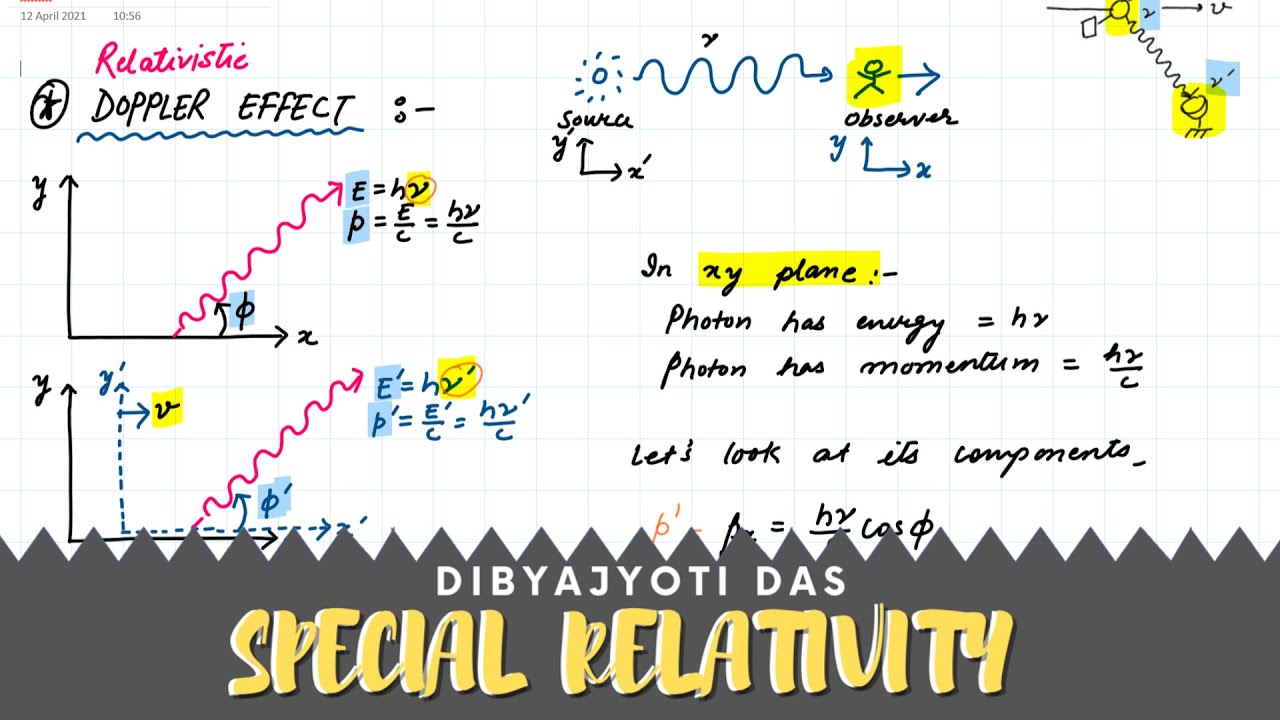 12 April 2021 10:56
Relativistic
* DOPPLER EFFECT :-
ν
Source
Observer
y' x'
y x
ν v
ν'
y
E = hν
p = E/c = hν/c
ϕ
x
y y'
v
E' = hν'
p' = E'/c = hν'/c
ϕ'
x'
In xy plane :-
Photon has energy = hν
Photon has momentum = hν/c
Let's look at its components
p' pₓ = hν cos ϕ
DIBYAJYOTI DAS
SPECIAL RELATIVITY